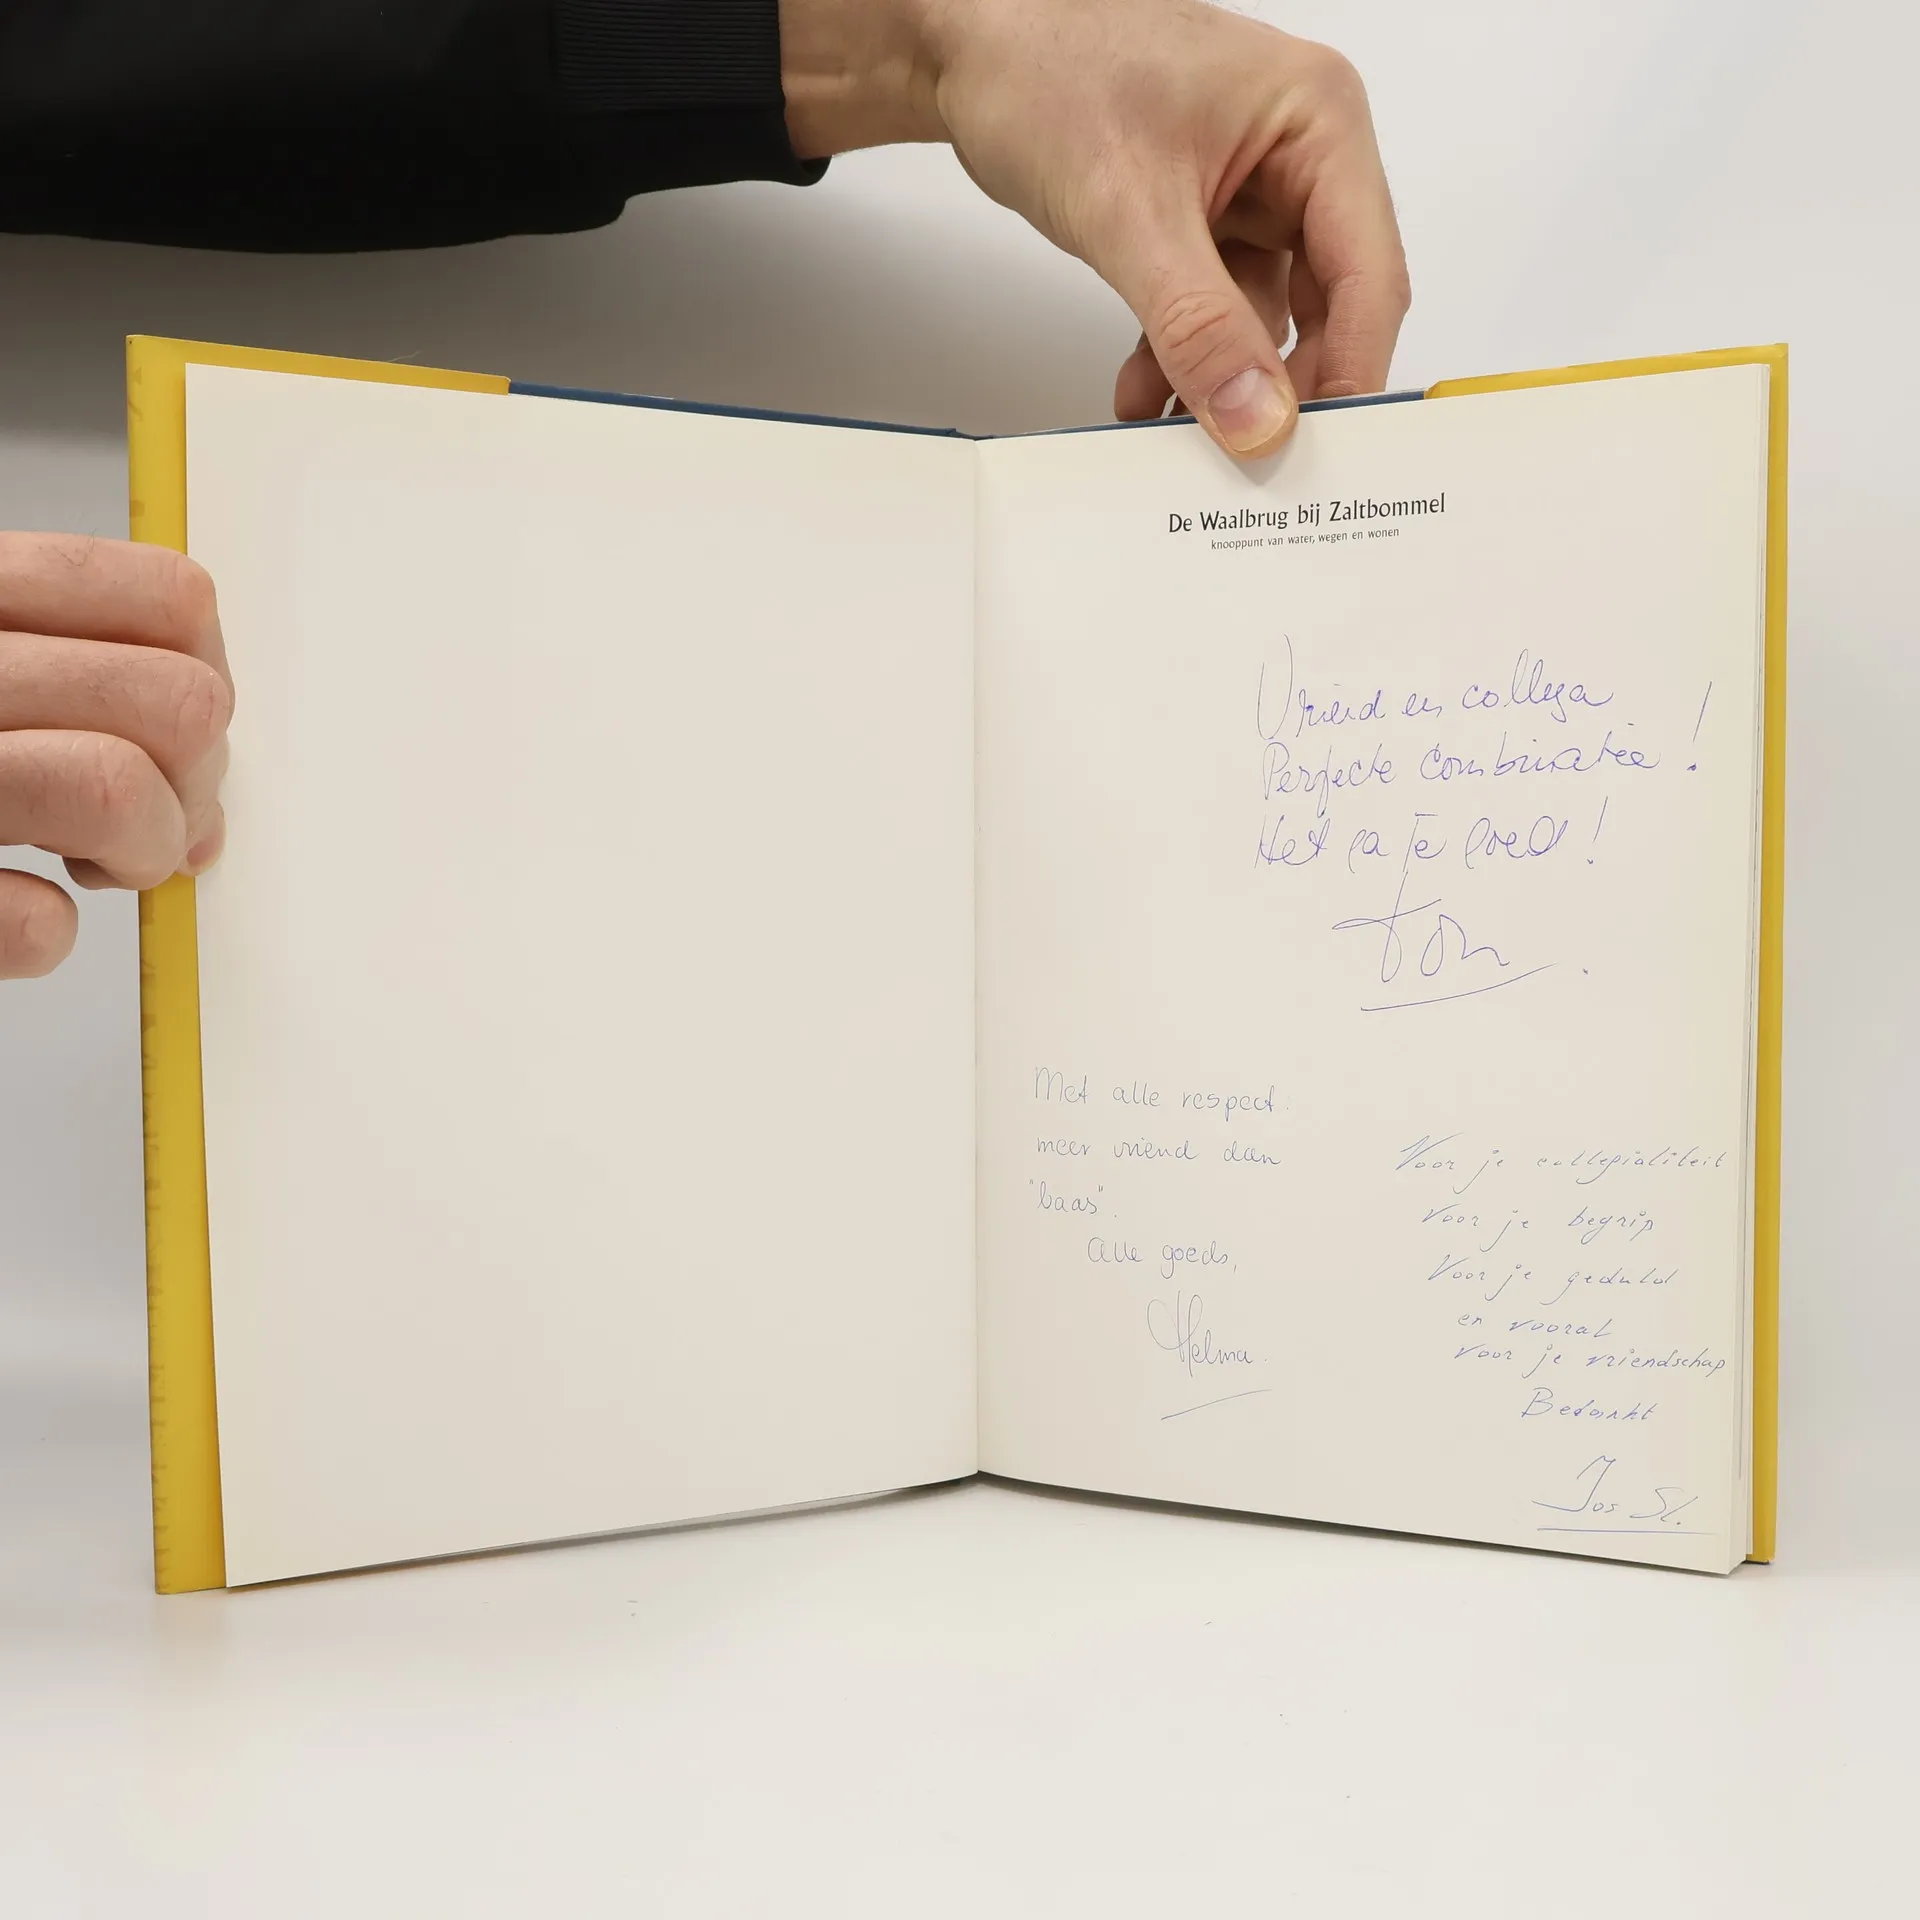 De Waalbrug bij Zaltbommel
knooppunt van water, wegen en wonen
Vriend en collega
Perfecte combinatie!
Het ga Je goed!
Ton
Met alle respect:
meer vriend dan
"baas".
Alle goeds,
Helma.
Voor je collegialiteit
Voor je begrip
Voor je geduld
en vooral
voor je vriendschap
Bedankt
Jos Sl.